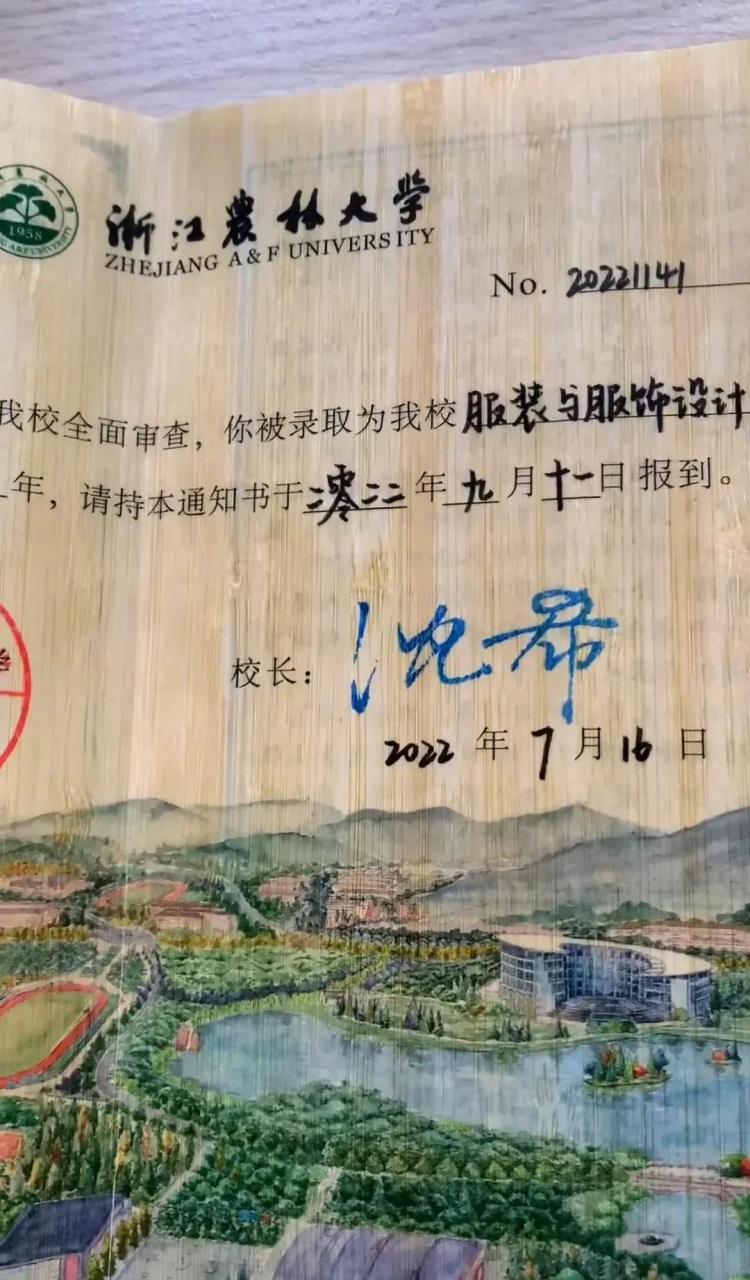 浙江農林大学
ZHEJIANG A & F UNIVERSITY
1958
No. 20221141
我校全面审查，你被录取为我校服装与服饰设计
年，请持本通知书于二零二二年九月十一日报到。
校长：沈希
2022年7月16日